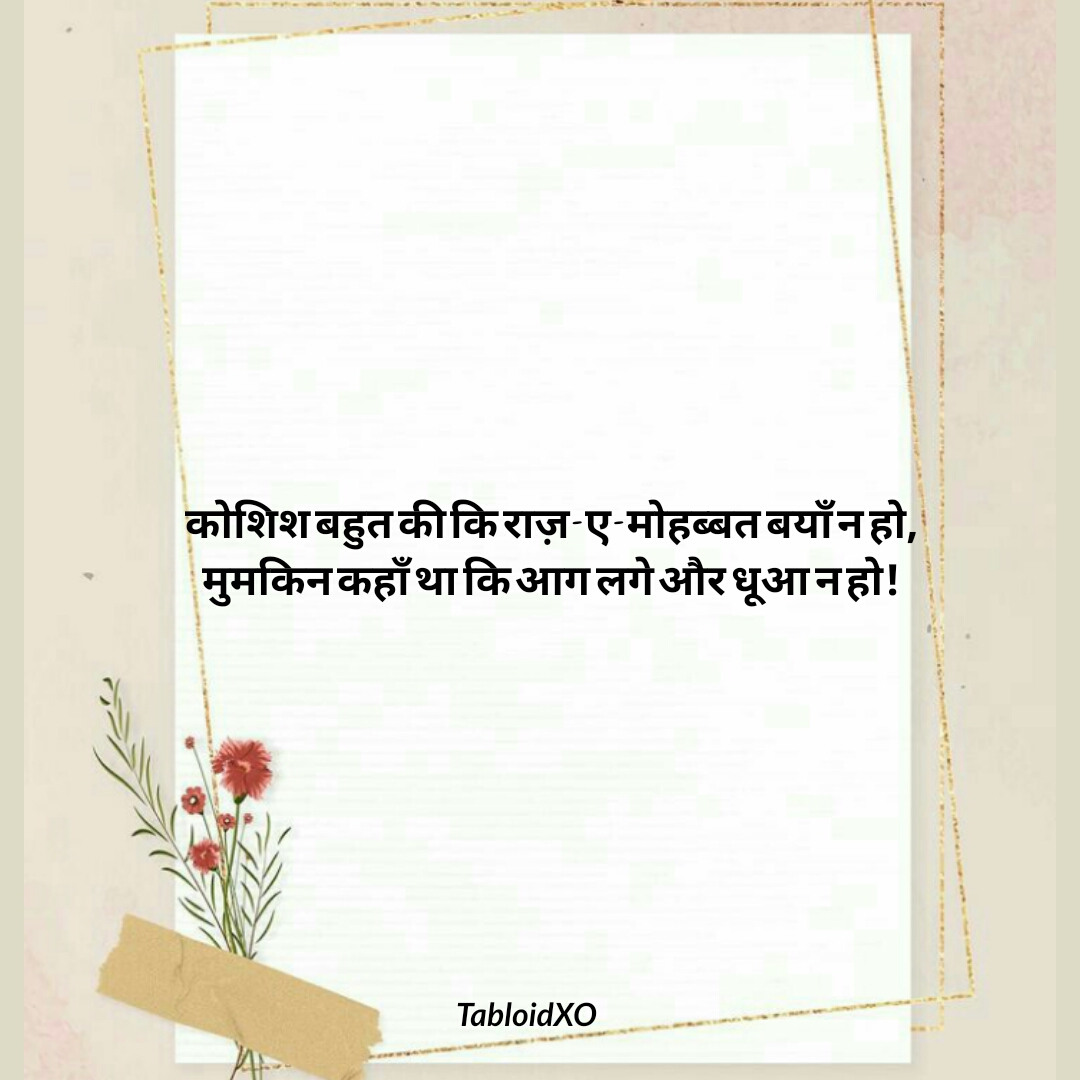 कोशिश बहुत की कि राज़-ए-मोहब्बत बयाँ न हो,
मुमकिन कहाँ था कि आग लगे और धूआ न हो!
TabloidXO